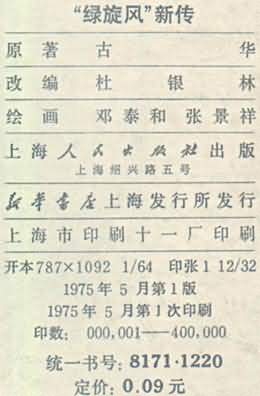 “绿旋风”新传
原著 古华
改编 杜银林
绘画 邓泰和 张景祥
上海人民出版社出版
上海绍兴路五号
新华书店上海发行所发行
上海市印刷十一厂印刷
开本787×1092 1/64 印张1 12/32
1975年5月第1版
1975年5月第1次印刷
印数：000,001——400,000
统一书号：8171·1220
定价：0.09元